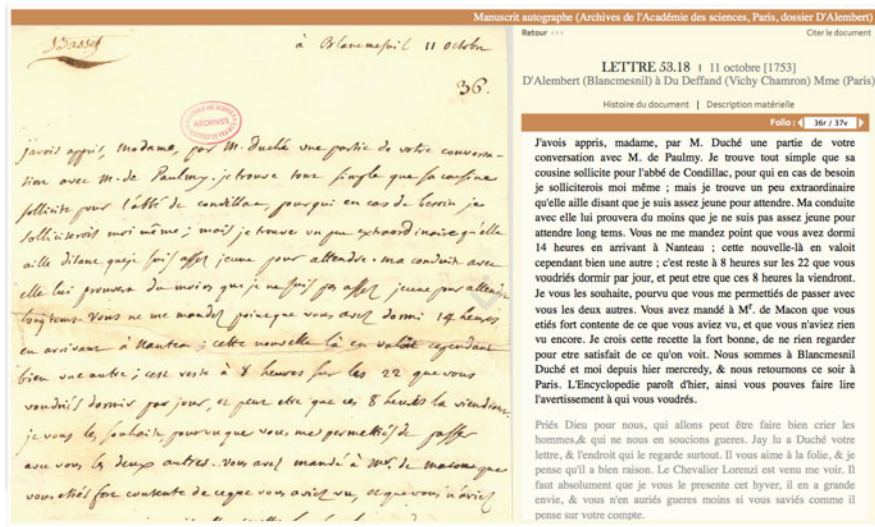 Manuscrit autographe (Archives de l'Académie des sciences, Paris, dossier D'Alembert)
Basset
à Blancmesnil 11 octobre
36.
ARCHIVES
j'avois appris, madame, par m. Duché une partie de votre conversa-
tion avec m. de Paulmy. je trouve tout simple que sa cousine
sollicite pour l'abbé de condillac, pour qui en cas de besoin je
solliciterois moi même ; mais je trouve un peu extraordinaire qu'elle
aille disant que je suis assez jeune pour attendre. ma conduite avec
elle lui prouvera du moins que je ne suis pas assez jeune pour attendre
longtems. vous ne me mandez point que vous avez dormi 14 heures
en arrivant à Nanteau ; cette nouvelle là en valoit cependant
bien une autre ; c'est reste à 8 heures sur les 22 que vous
voudriés dormir par jour, et peut etre que ces 8 heures la viendront.
je vous les souhaite, pourvu que vous me permettiés de passer
avec vous les deux autres. vous avez mandé à Mr. de macon que
vous etiés fort contente de ce que vous aviez vu, et que vous n'aviez
Retour <<<
Citer le document
LETTRE 53.18 | 11 octobre [1753]
D'Alembert (Blancmesnil) à Du Deffand (Vichy Chamron) Mme (Paris)
Histoire du document | Description matérielle
Folio : 36r / 37v
J'avois appris, madame, par M. Duché une partie de votre
conversation avec M. de Paulmy. Je trouve tout simple que sa
cousine sollicite pour l'abbé de Condillac, pour qui en cas de besoin
je solliciterois moi même ; mais je trouve un peu extraordinaire
qu'elle aille disant que je suis assez jeune pour attendre. Ma conduite
avec elle lui prouvera du moins que je ne suis pas assez jeune pour
attendre long tems. Vous ne me mandez point que vous avez dormi
14 heures en arrivant à Nanteau ; cette nouvelle-là en valoit
cependant bien une autre ; c'est reste à 8 heures sur les 22 que vous
voudriés dormir par jour, et peut etre que ces 8 heures la viendront.
Je vous les souhaite, pourvu que vous me permettiés de passer avec
vous les deux autres. Vous avez mandé à Mr. de Macon que vous
etiés fort contente de ce que vous aviez vu, et que vous n'aviez rien
vu encore. Je crois cette recette la fort bonne, de ne rien regarder
pour etre satisfait de ce qu'on voit. Nous sommes à Blancmesnil
Duché et moi depuis hier mercredy, & nous retournons ce soir à
Paris. L'Encyclopedie paroît d'hier, ainsi vous pouves faire lire
l'avertissement à qui vous voudrés.
Priés Dieu pour nous, qui allons peut être faire bien crier les
hommes,& qui ne nous en soucions gueres. Jay lu a Duché votre
lettre, & l'endroit qui le regarde surtout. Il vous aime à la folie, & je
pense qu'il a bien raison. Le Chevalier Lorenzi est venu me voir. Il
faut absolument que je vous le presente cet hyver, il en a grande
envie, & vous n'en auriés gueres moins si vous saviés comme il
pense sur votre compte.